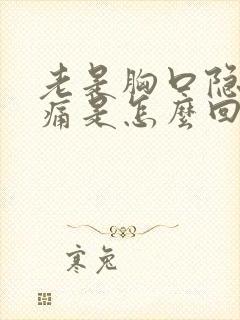 老是胸口隐
痛是怎麼回
寒兔